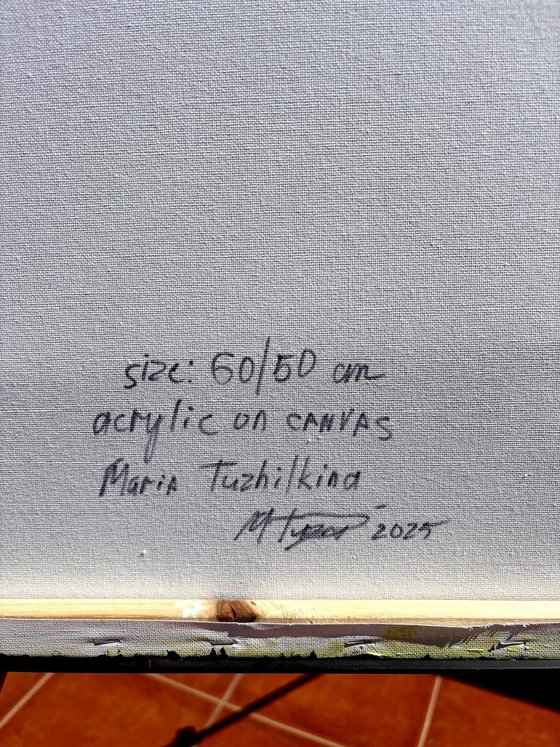 size: 60/50 cm
acrylic on CANVAS
Maria Tuzhilkina
2025